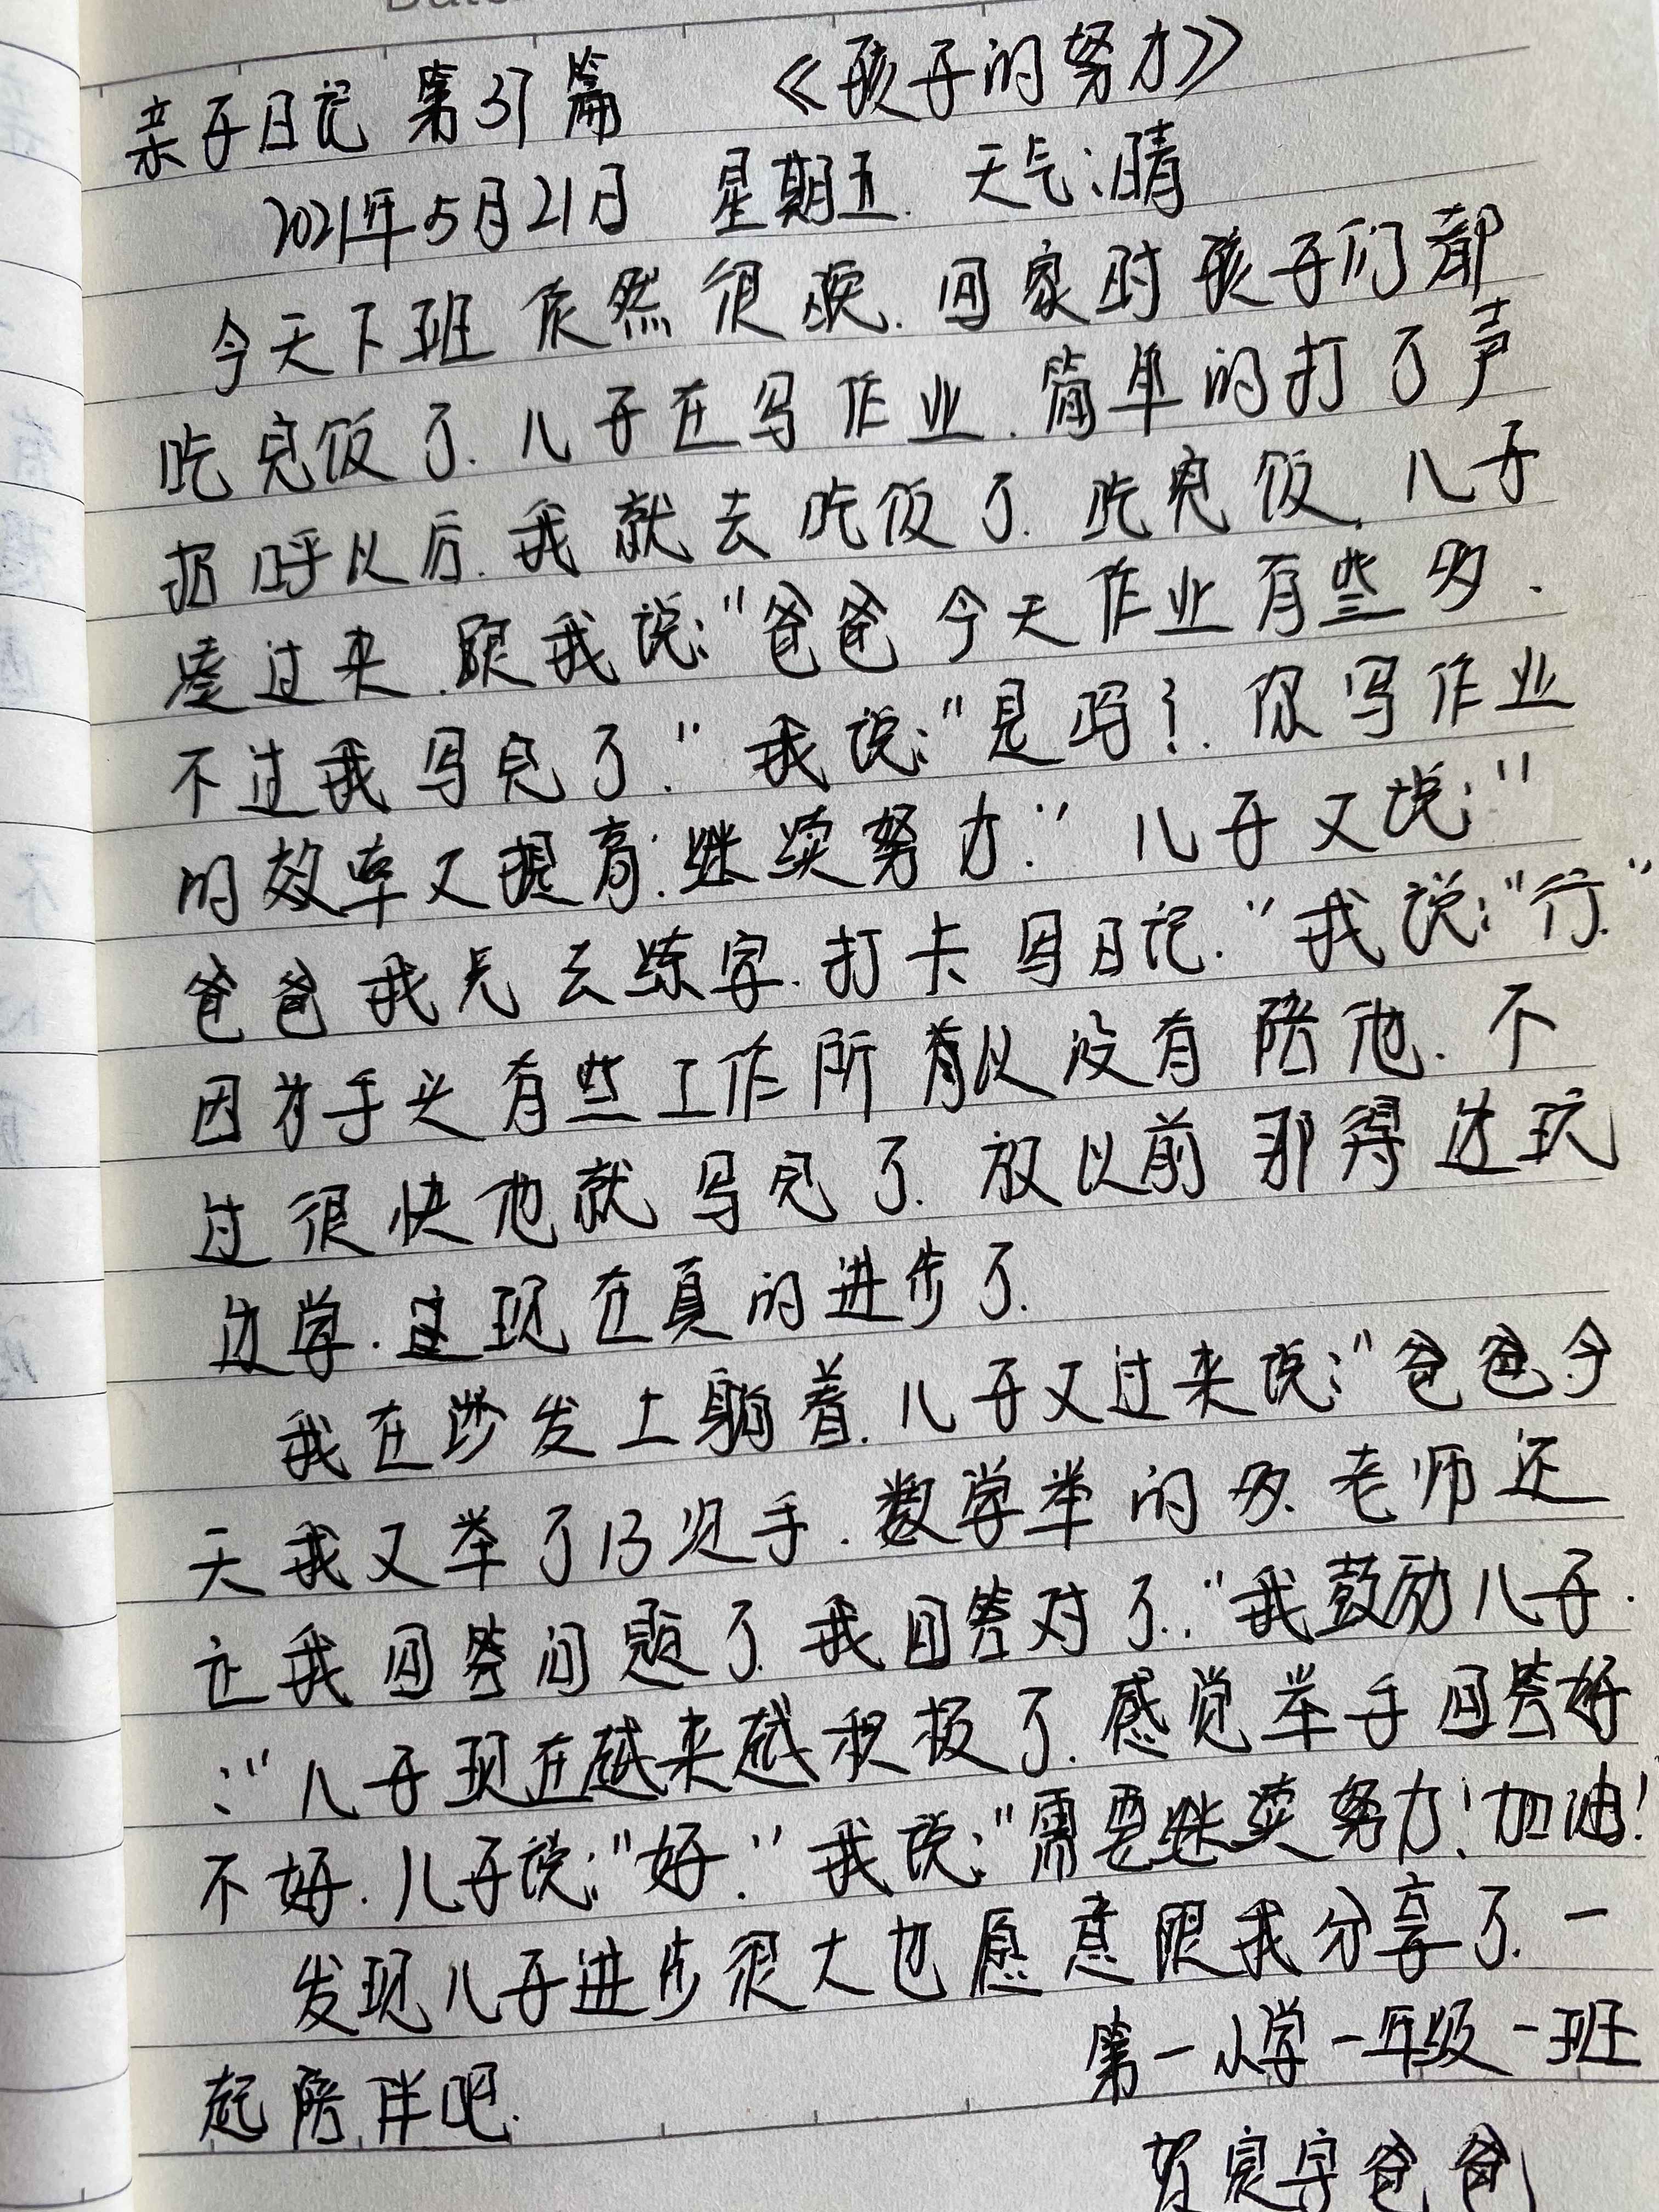 亲子日记 第37篇 《孩子的努力》
2021年5月21日 星期五. 天气:晴
今天下班依然很晚.回家时孩子们都
吃完饭了.儿子在写作业.简单的打了声
招呼以后.我就去吃饭了.吃完饭,儿子
凑过来.跟我说:"爸爸今天作业有些多.
不过我写完了."我说:"是吗?.你写作业
的效率又提高.继续努力."儿子又说:"
爸爸我先去练字.打卡写日记."我说:"行."
因为手头有些工作所以没有陪他.不
过很快他就写完了.放以前那得边玩
边学.这现在真的进步了.
我在沙发上躺着.儿子又过来说:"爸爸今
天我又举了13次手.数学举的多.老师还
让我回答问题了.我回答对了."我鼓励儿子.
:"儿子现在越来越积极了.感觉举手回答好
不好.儿子说:"好."我说:"需要继续努力!加油!
发现儿子进步很大也愿意跟我分享了.一
起陪伴吧.
第一小学一年级一班
贺 宇爸爸